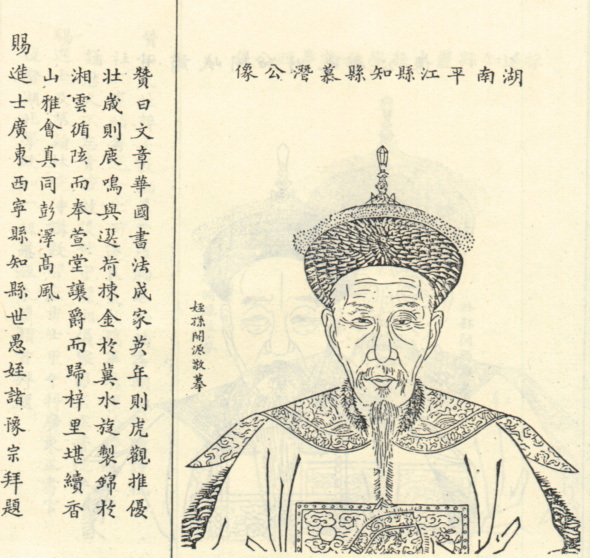 湖南平江縣知縣慕濳公像
姪孫開源敬摹
贊曰文章華國書法成家英年則虎觀推優
壯歲則鹿鳴與選荷揀金扵冀水旋製錦扵
湘雲循陔而奉萱堂讓爵而歸梓里堪續香
山雅會真同彭澤髙風
賜進士廣東西寧縣知縣世愚姪諸豫宗拜題